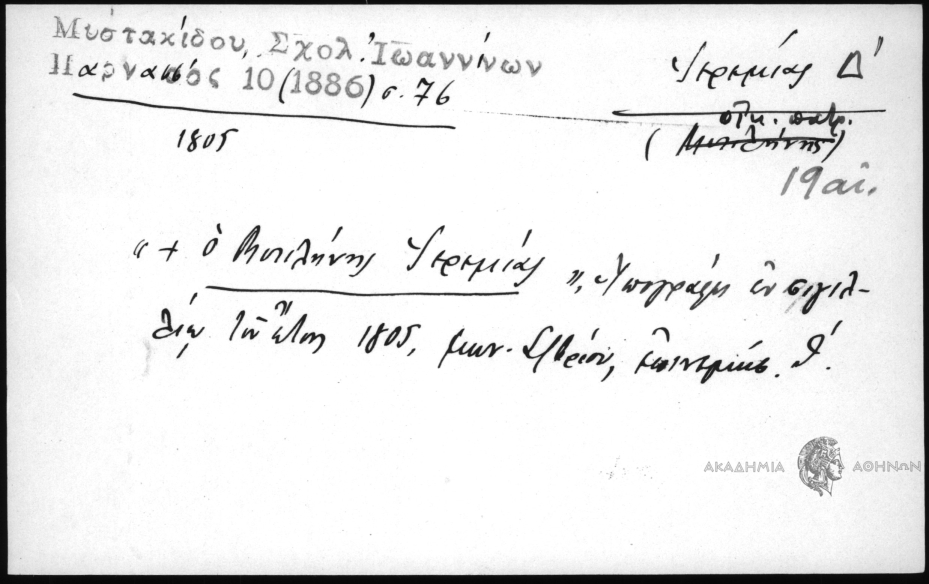 Μυστακίδου, Σχολ. Ἰωαννίνων
Παρνασσός 10 (1886) σ. 76
Ἱερεμίας Δ'
οἰκ. πατρ.
(Μυτιλήνης)
1805
19 αἰ.
"+ ὁ Μυτιλήνης Ἱερεμίας", ὑπογράφει ἐν σιγιλ-
λίῳ τοῦ ἔτους 1805, μην. Σ/βρίου, ἐπινεμήσ. θ'.
ΑΚΑΔΗΜΙΑ ΑΘΗΝΩΝ